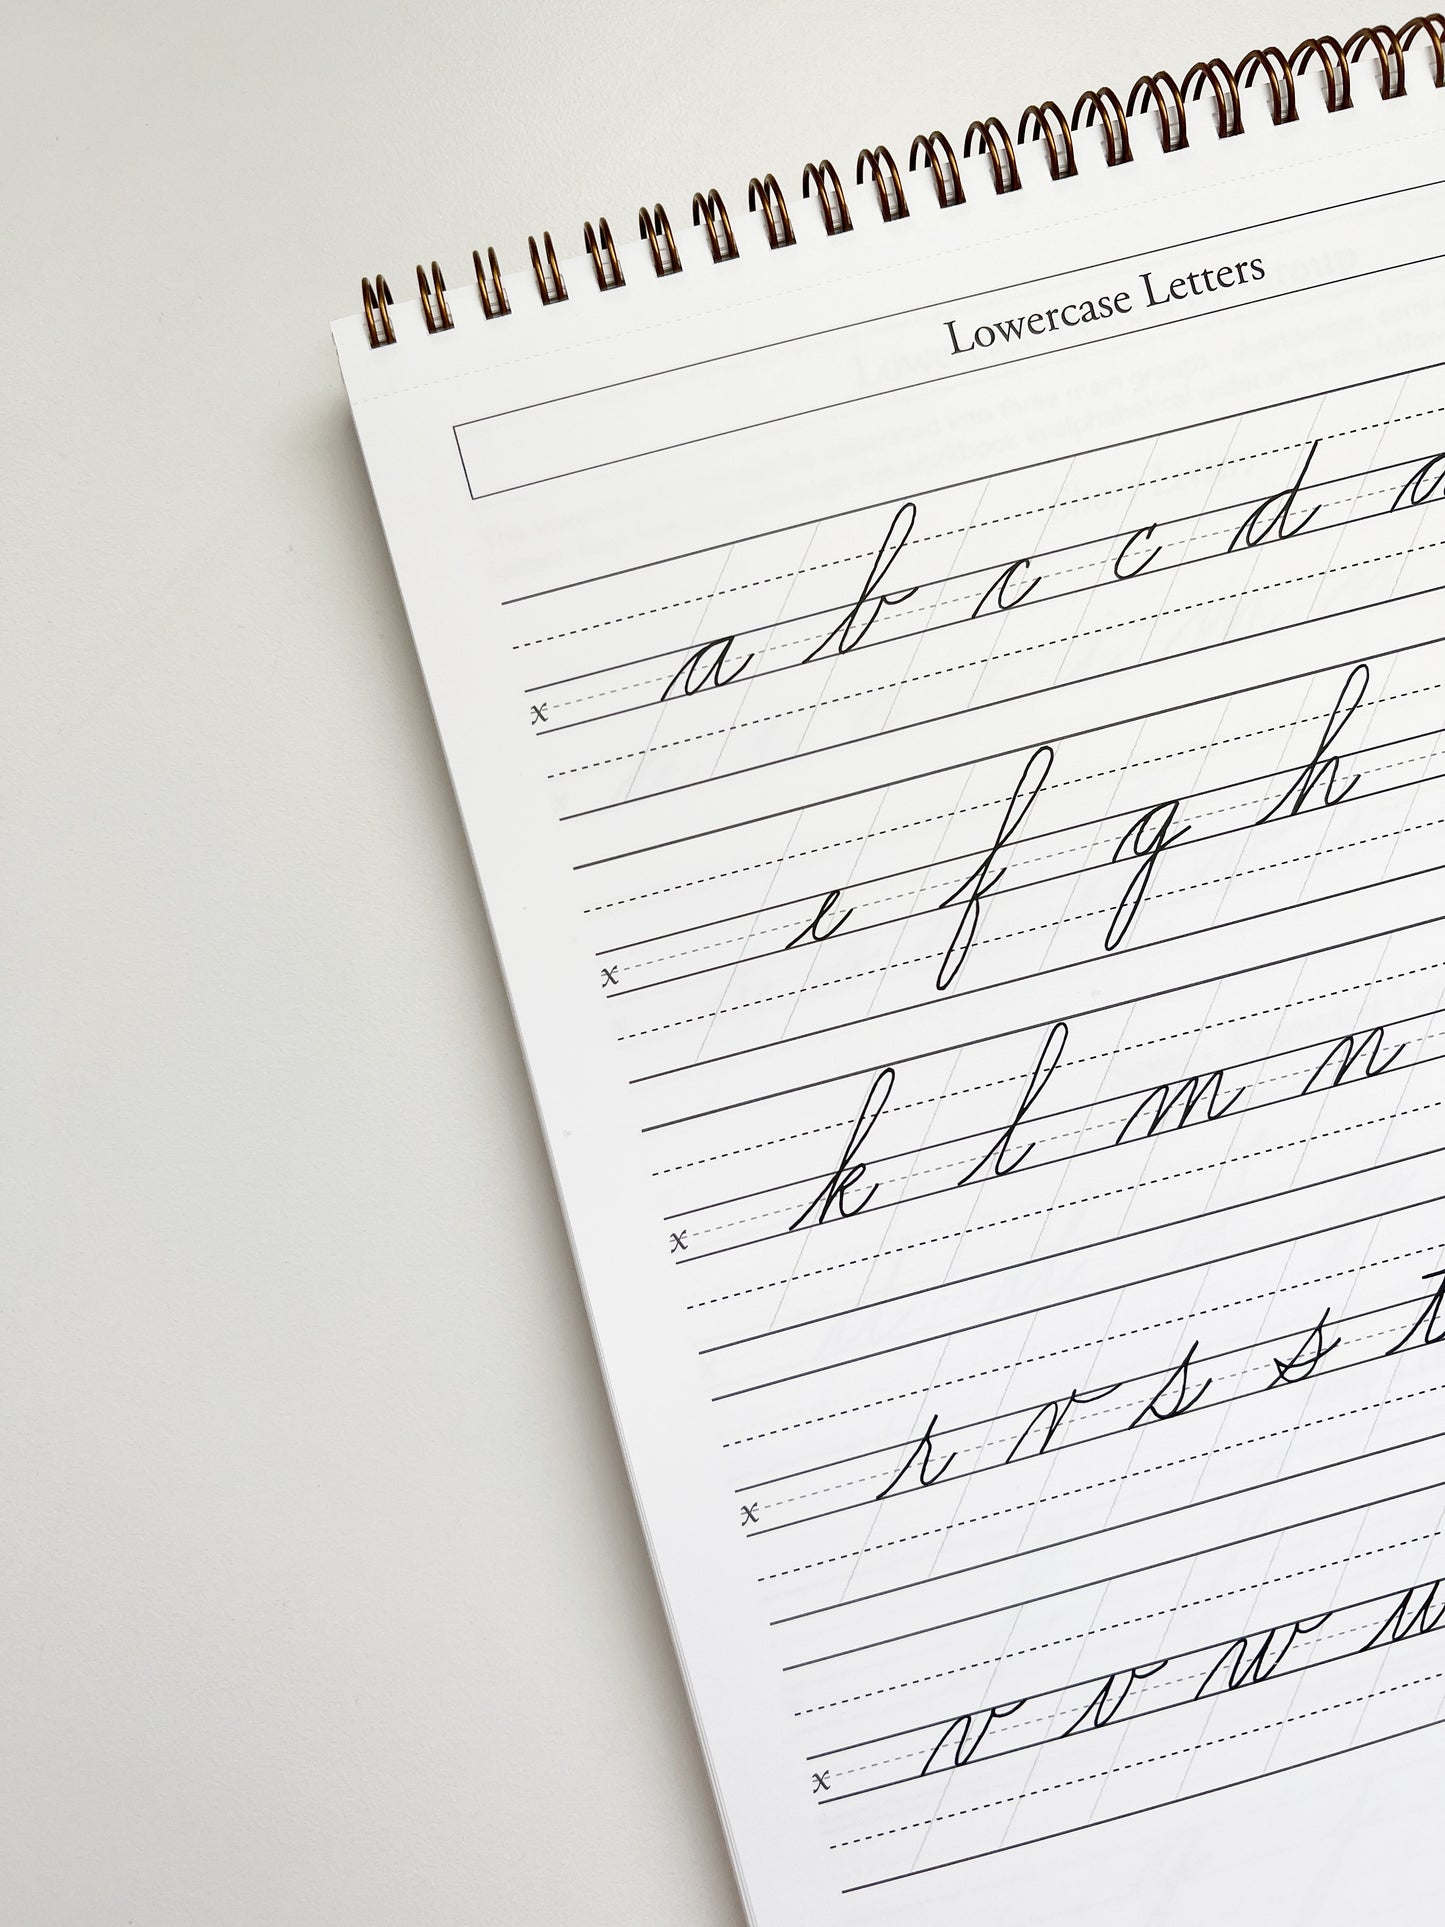 Lowercase Letters
a b c c d
x
e f g h
x
k l m n
x
r r s s t
x
v v w u
x